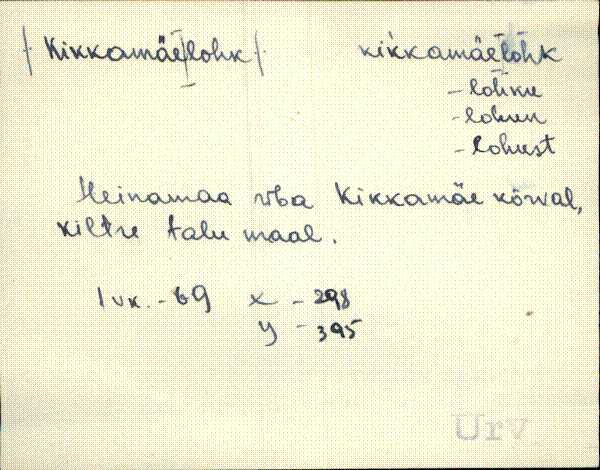 | Kikkamäe|lohk | kìkkamäelohk
- lohku
- lohun
- lohust
Heinamaa Kikkamäe kõrval,
kiltre talu maal.
I vk. - 69 x - 298
y - 395
Urv